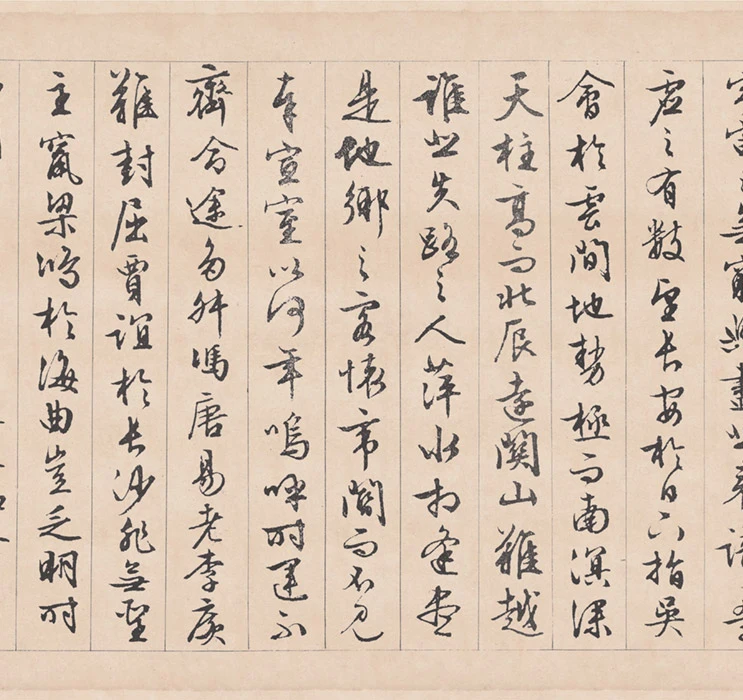 宇宙之無窮興盡悲來識盈
虛之有數望長安於日下指吳
會於雲間地勢極而南溟深
天柱高而北辰遠關山難越
誰悲失路之人萍水相逢盡
是他鄉之客懷帝閽而不見
奉宣室以何年嗚呼時運不
齊命途多舛馮唐易老李廣
難封屈賈誼於長沙非無聖
主竄梁鴻於海曲豈乏明時